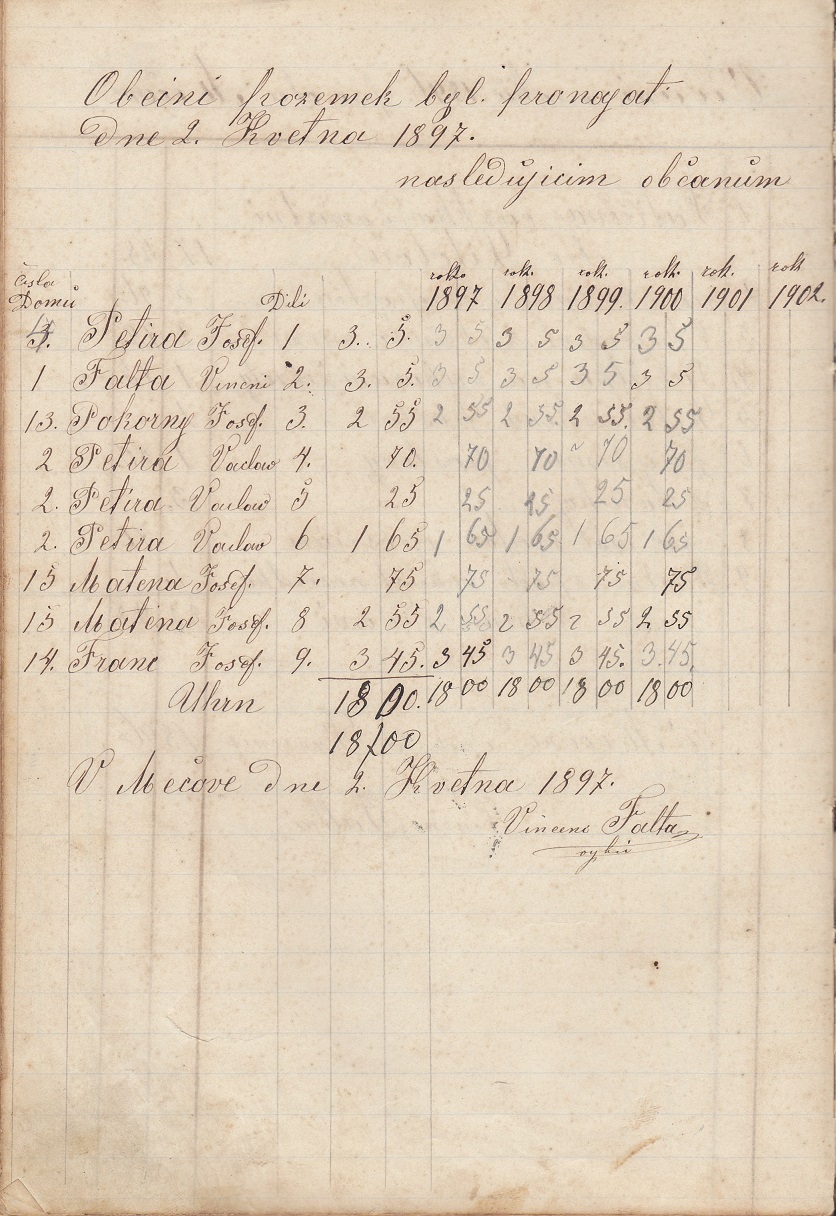 Obecní pozemek byl. pronajat
dne 2. Května 1897.
následujícím občanům
čísla rok. rok. rok. rok. rok. rok
Domů Díli 1897 1898 1899. 1900 1901 1902.
Petira Josef. 1 3. 5. 3 5 3 5 3 5 3 5
1 Falta Vincní 2. 3. 5. 3 5 3 5 3 5 3 5
13. Pokorny Josef. 3. 2 55 2 55 2 55. 2 55. 2 55
2 Petira Vaclav 4. 70. 70 70 70 70
2. Petira Vaclav 5 25 25 25 25 25
2. Petira Vaclav 6 1 65 1 65 1 65 1 65 1 65
15 Matena Josef. 7. 75 75 75 75 75
15 Matěna Josef. 8 2 55 2 55 2 55 2 55 2 55
14. Franc Josef. 9. 3 45. 3 45 3 45 3 45. 3.45.
Uhrn 18 00. 18 00 18 00 18 00 18 00
18/00
V Mečove dne 2. Května 1897.
Vincenc Falta